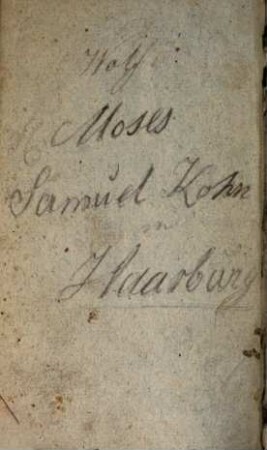 Wolf
Moses
Samuel Kohn
in
Haarburg